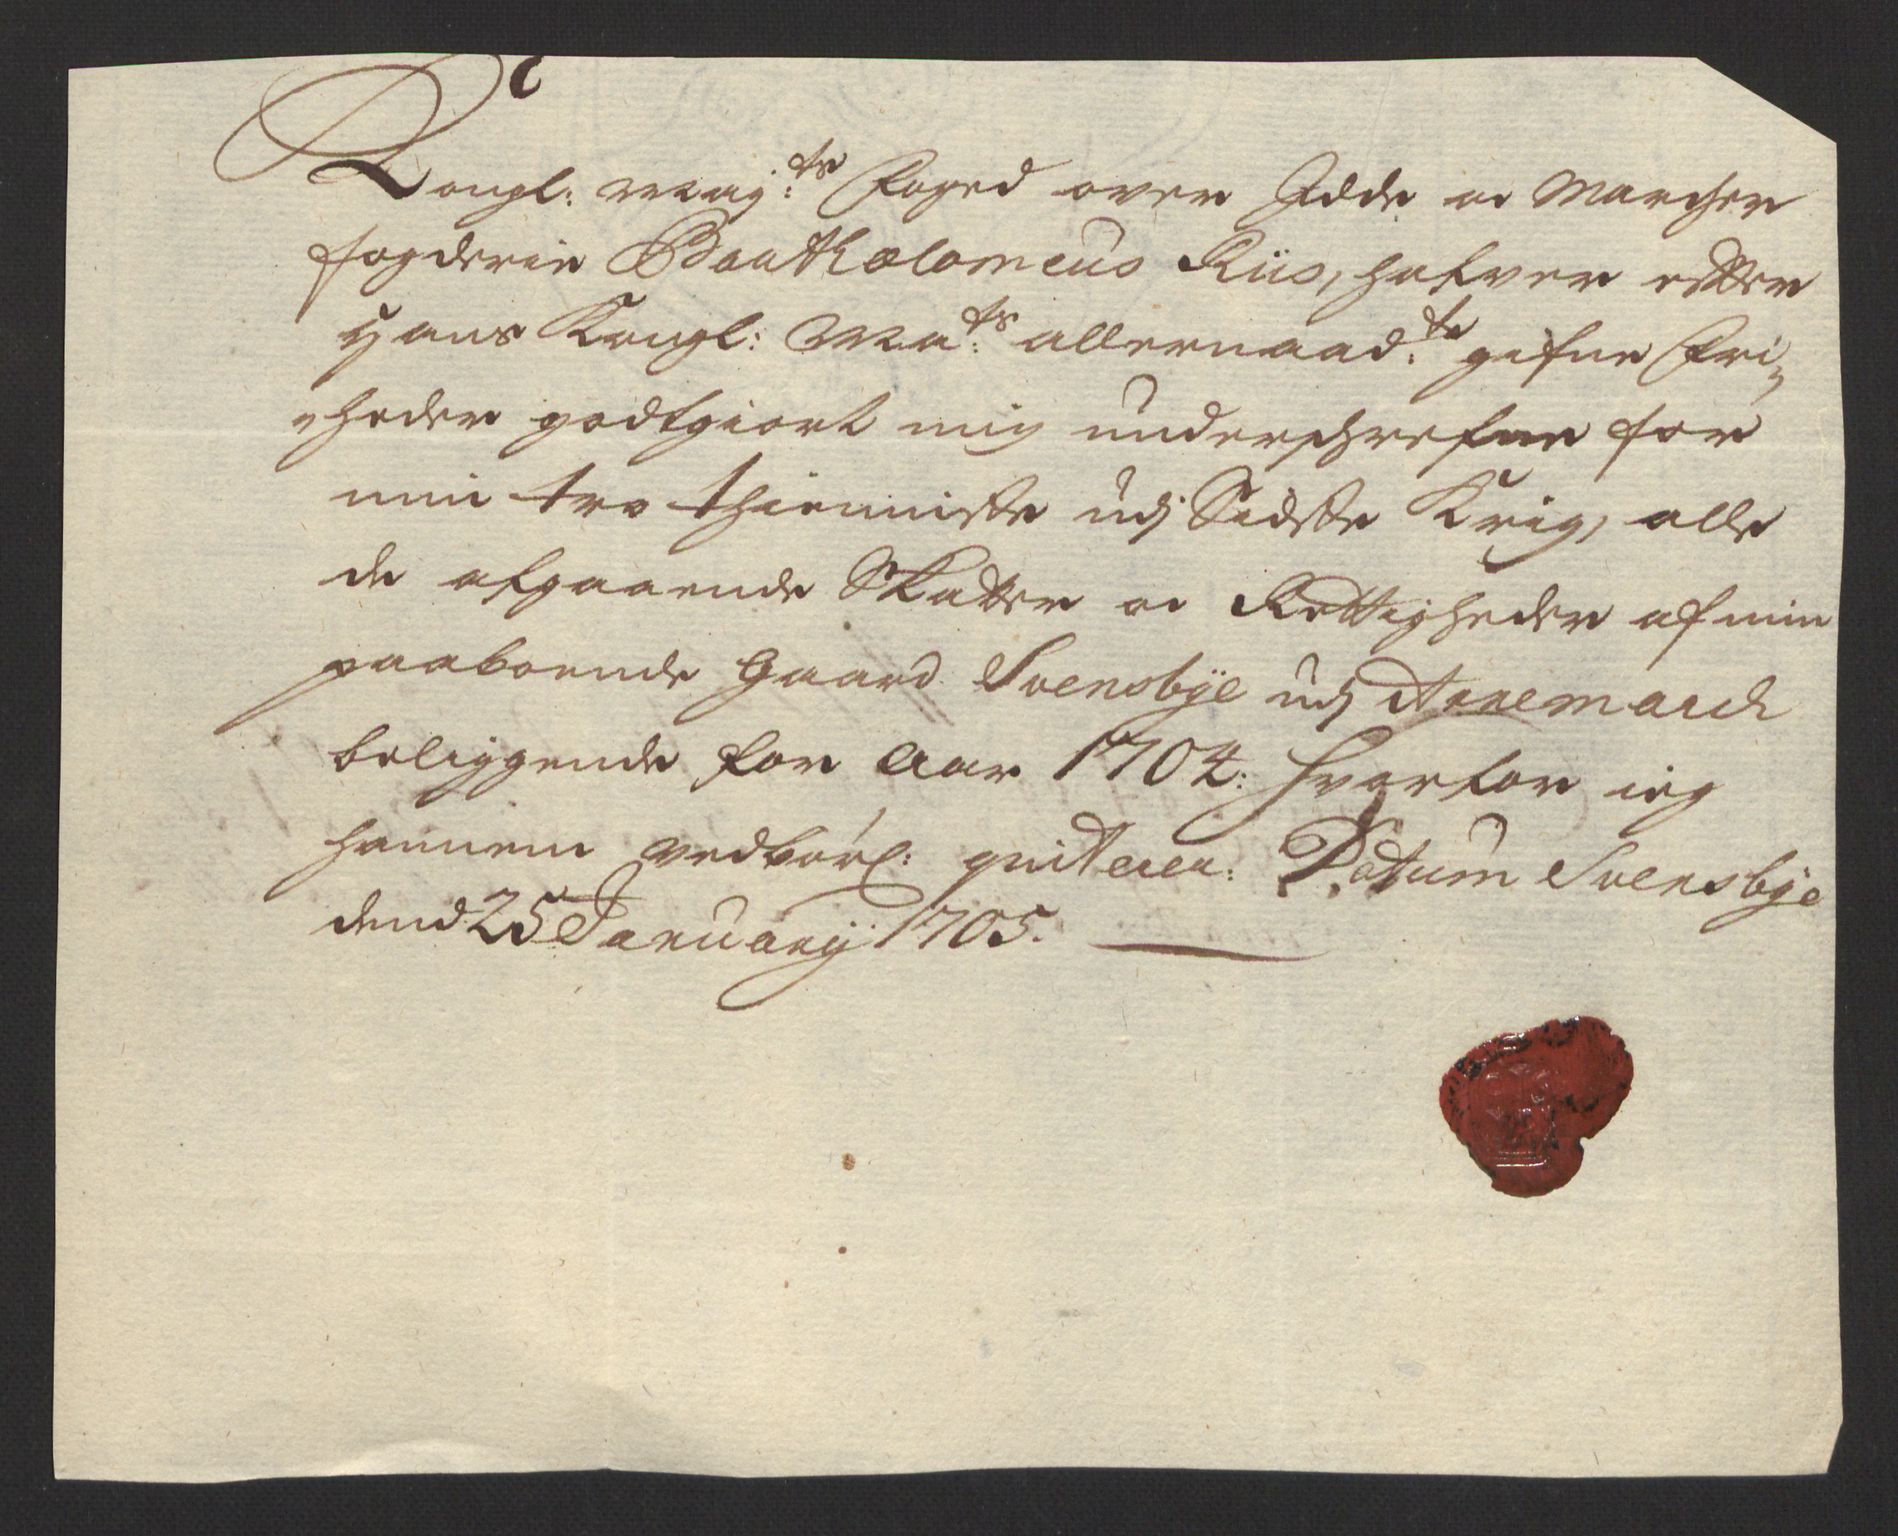 Kongl: May:ts Foged over Idde oc Marcher
fogderie Bartholomeus Riis, hafver efter
Hans Kongl: Ma:ts allernaad:te gifne Fri¬
heder godtgiort mig underschrefne for
min tro thienniste udj Sidste Krig, alle
de afgaaende Skatter oc Rettigheder af min
paaboende Gaard Svensbye udj Aremarch
beliggende for Aar 1704: hvorfor ieg
hannem vedbørl: qviterer. Datum Svensbye
dend 25 Januarij 1705.